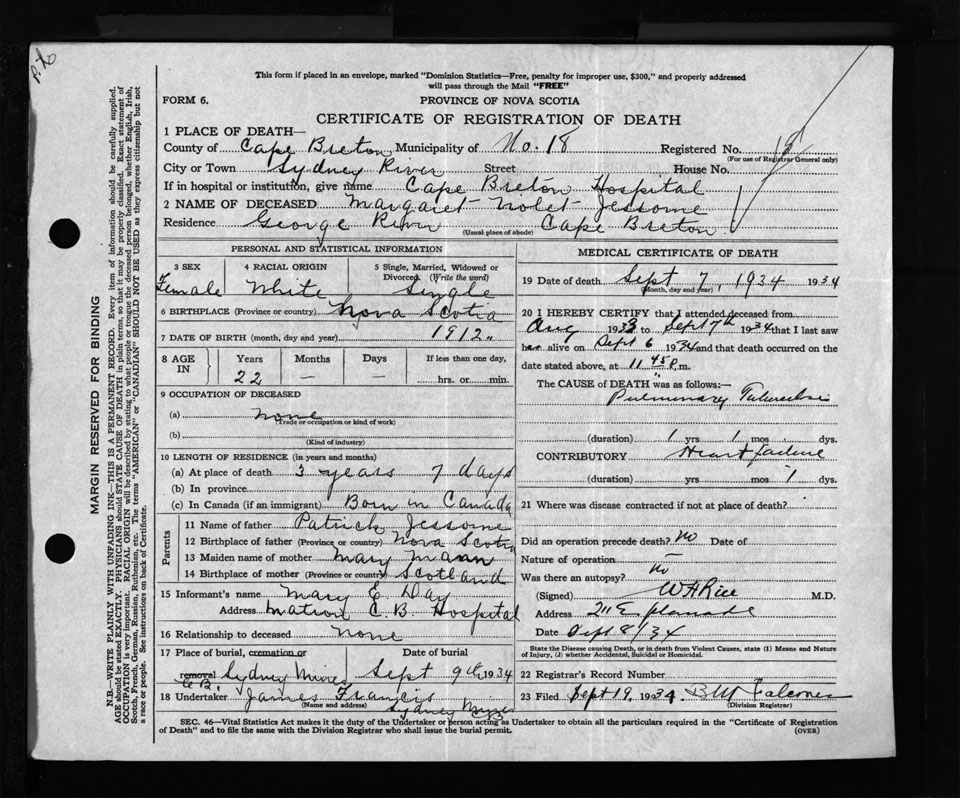 This form if placed in an envelope, marked "Dominion Statistics—Free, penalty for improper use, $300," and properly addressed
will pass through the Mail "FREE"
FORM 6.
PROVINCE OF NOVA SCOTIA
CERTIFICATE OF REGISTRATION OF DEATH
1 PLACE OF DEATH—
County of Cape Breton Municipality of No. 18 Registered No.
(For use of Registrar General only)
City or Town Sydney River Street House No.
If in hospital or institution, give name Cape Breton Hospital
2 NAME OF DECEASED Margaret Violet Jessome
Residence George River Cape Breton
(Usual place of abode)
PERSONAL AND STATISTICAL INFORMATION
3 SEX 4 RACIAL ORIGIN 5 Single, Married, Widowed or
Divorced (Write the word)
Female White Single
6 BIRTHPLACE (Province or country) Nova Scotia
7 DATE OF BIRTH (month, day and year) 1912
8 AGE IN Years Months Days If less than one day,
22 — hrs. or min.
9 OCCUPATION OF DECEASED
(a) none
(Trade or occupation or kind of work)
(b)
(Kind of industry)
10 LENGTH OF RESIDENCE (in years and months)
(a) At place of death 3 years 7 days
(b) In province
(c) In Canada (if an immigrant) Born in Canada
Parents
11 Name of father Patrick Jessome
12 Birthplace of father (Province or country) Nova Scotia
13 Maiden name of mother Mary Mann
14 Birthplace of mother (Province or country) Scotland
15 Informant's name Mary E Day
Address Matron C.B. Hospital
16 Relationship to deceased none
17 Place of burial, cremation or Date of burial
removal Sydney Mines Sept 9th 1934
C B.
18 Undertaker James Francis
(Name and address) Sydney Mines
MEDICAL CERTIFICATE OF DEATH
19 Date of death Sept 7, 1934 1934
(Month, day and year)
20 I HEREBY CERTIFY that I attended deceased from
Aug 1933 to Sept 7th 1934 that I last saw
her alive on Sept 6 1934 and that death occurred on the
date stated above, at 11 45 p.m.
The CAUSE OF DEATH was as follows:—
Pulmonary Tuberculosis
(duration) 1 yrs 1 mos dys.
CONTRIBUTORY Heart failure
(duration) yrs mos 1 dys.
21 Where was disease contracted if not at place of death?
Did an operation precede death? no Date of
Nature of operation —
Was there an autopsy? no
(Signed) W H Rice M.D.
Address 211 Esplanade
Date Sept 8/34
State the Disease causing Death, or in death from Violent Causes, state (1) Means and Nature
of Injury, (2) whether Accidental, Suicidal or Homicidal.
22 Registrar's Record Number
23 Filed Sept 19, 1934 B M Falconer
(Division Registrar)
SEC. 46—Vital Statistics Act makes it the duty of the Undertaker or person acting as Undertaker to obtain all the particulars required in the "Certificate of Registration
of Death" and to file the same with the Division Registrar who shall issue the burial permit.
(OVER)
MARGIN RESERVED FOR BINDING
N.B.—WRITE PLAINLY WITH UNFADING INK—THIS IS A PERMANENT RECORD. Every item of information should be carefully supplied.
AGE should be stated EXACTLY. PHYSICIANS should STATE CAUSE OF DEATH in plain terms, so that it may be properly classified. Exact statement of
OCCUPATION is very important. RACIAL ORIGIN will be described by stating to what people or tongue the deceased person belonged, whether English, Irish,
Scotch, French, German, Russian, Ruthenian, etc. The terms "AMERICAN" or "CANADIAN" SHOULD NOT BE USED as they express citizenship but not
a race or people. See instructions on back of Certificate.